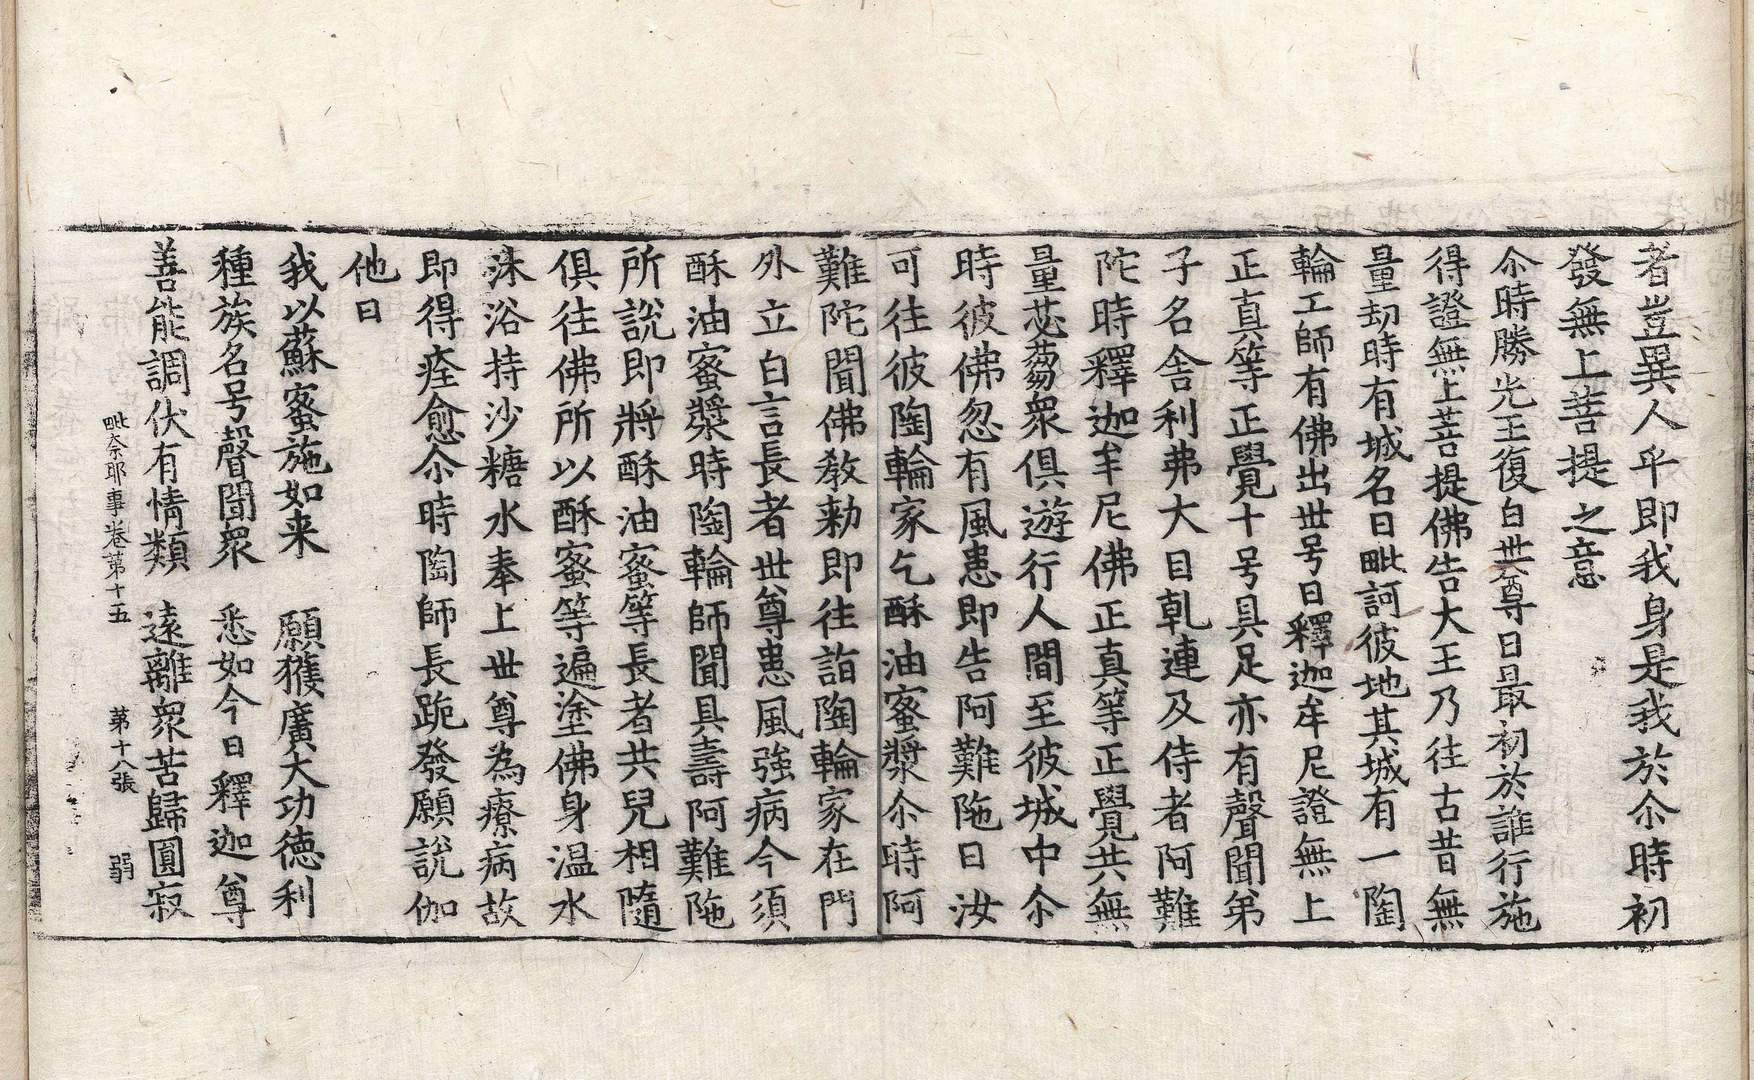 者豈異人乎即我身是我於尒時初
發無上菩提之意
尒時勝光王復白世尊曰最初於誰行施
得證無上菩提佛告大王乃往古昔無
量劫時有城名曰毗訶彼地其城有一陶
輪工師有佛出世号曰釋迦牟尼證無上
正真等正覺十号具足亦有聲聞弟
子名舍利弗大目乹連及侍者阿難
陀時釋迦牟尼佛正真等正覺共無
量苾蒭衆俱遊行人間至彼城中尒
時彼佛忽有風患即告阿難陁曰汝
可往彼陶輪家乞酥油蜜漿尒時阿
難陀聞佛教勑即往詣陶輪家在門
外立白言長者世尊患風強病今須
酥油蜜漿時陶輪師聞具壽阿難陁
所說即將酥油蜜等長者共兒相隨
俱往佛所以酥蜜等遍塗佛身温水
沐浴持沙糖水奉上世尊為療病故
即得痊愈尒時陶師長跪發願說伽
他曰
我以蘇蜜施如来　願獲廣大功徳利
種族名号聲聞衆　悉如今日釋迦尊
善能調伏有情類　遠離衆苦歸圓寂
毗奈耶事卷第十五　第十八張　弱